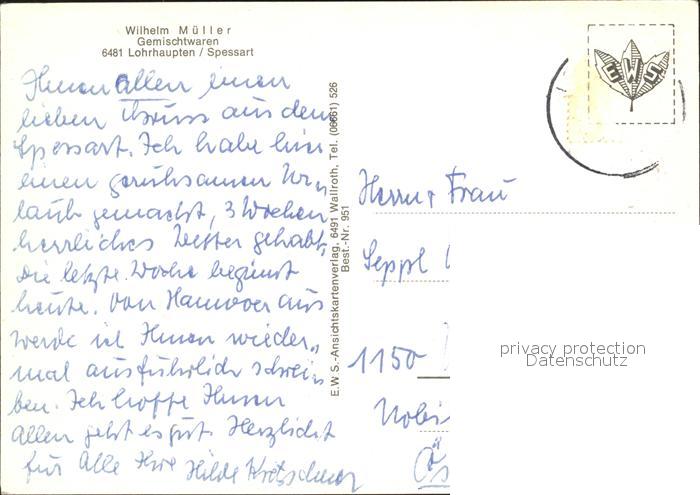 Wilhelm Müller
Gemischtwaren
6481 Lohrhaupten / Spessart
Ihnen allen einen
lieben Gruss aus dem
Spessart. Ich habe hier
einen geruhsamen Ur„
laub gemacht, 3 Wochen
herrliches Wetter gehabt,
die letzte Woche beginnt
heute. Von Hannover aus
werde ich Ihnen wieder„
mal ausführlich schrei„
ben. Ich hoffe Ihnen
Allen geht es gut. Herzlichst
für Alle Ihre Hilde Kretschmer
E.W.S.-Ansichtskartenverlag, 6491 Wallroth, Tel. (06661) 526
Best.-Nr. 951
EWS
Herrn + Frau
Seppl
1150
privacy protection
Datenschutz